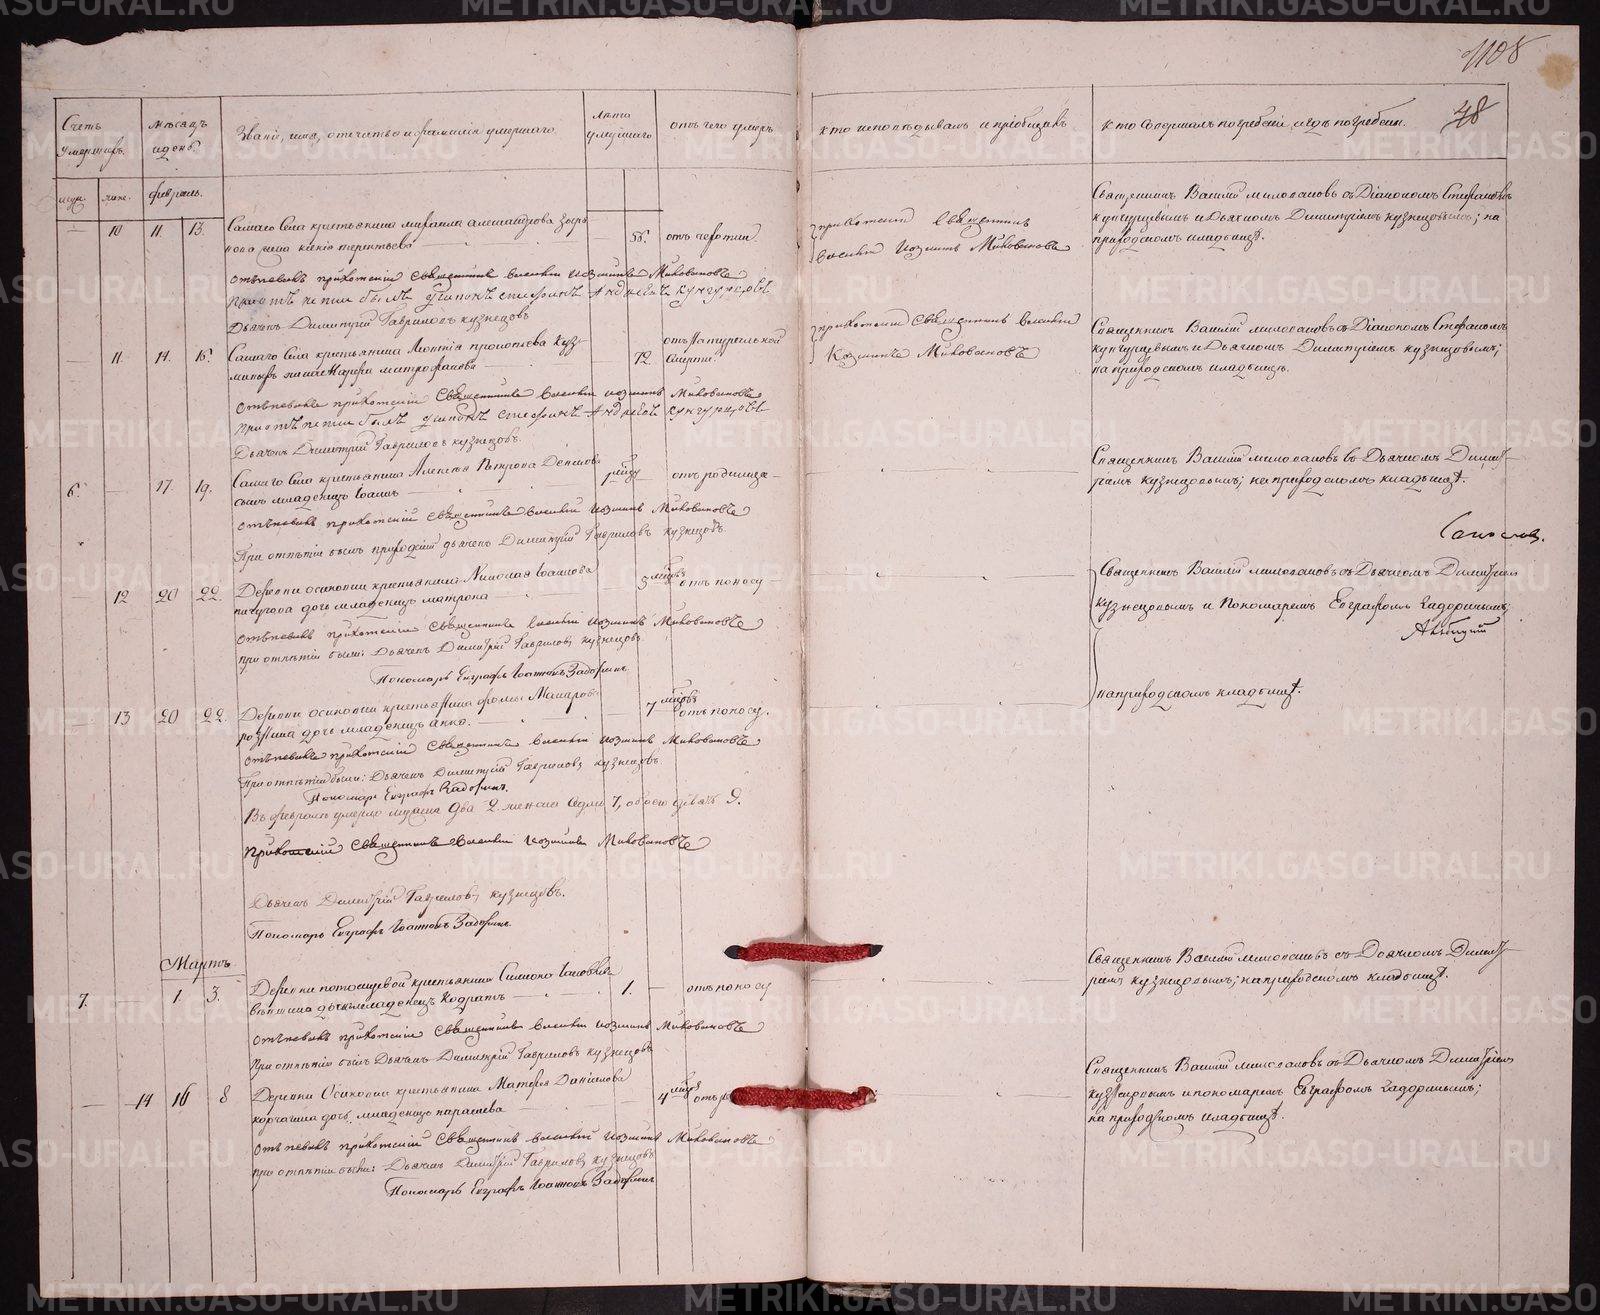 1108
48
Счетъ умершихъ.
мѣсяцъ и день.
Званіе, имя, отечество и фамилія умершаго.
лѣта умершаго.
отъ чего умеръ
кто исповѣдывалъ и пріобщалъ
кто совершалъ погребеніе, и гдѣ погребены.
муж.
жен.
февраль.
10
11.
13.
Самаго Села крестьянина Михаила Александрова
жена
56.
отъ чахотки
приходскій Священникъ
Василій Козминъ Миловановъ
Священникъ Василій Миловановъ съ Діакономъ Стефаномъ
Кунгурцевымъ и Дьячкомъ Димитріемъ Кузнецовымъ; на
приходскомъ кладбищѣ.
Отпѣвалъ приходскій Священникъ Василій Козминъ Миловановъ
При отпѣтіи былъ Діаконъ Стефанъ Андреевъ Кунгурцевъ
Дьячекъ Димитрій Гавриловъ Кузнецовъ
11.
14.
16.
Самаго Села крестьянина
жена Марфа Митрофанова
72.
отъ Натуральной смерти.
приходскій Священникъ Василій
Козминъ Миловановъ
Священникъ Василій Миловановъ съ Діакономъ Стефаномъ
Кунгурцевымъ и Дьячкомъ Димитріемъ Кузнецовымъ;
на приходскомъ кладбищѣ.
Отпѣвалъ приходскій Священникъ Василій Козминъ Миловановъ
При отпѣтіи былъ Діаконъ Стефанъ Андреевъ Кунгурцевъ
Дьячекъ Димитрій Гавриловъ Кузнецовъ.
6.
17.
19.
Самаго Села крестьянина Алексѣя Петрова Денисова
сынъ младенецъ Іоаннъ
отъ родимца
Священникъ Василій Миловановъ съ Дьячкомъ Димит-
ріемъ Кузнецовымъ; на приходскомъ кладбищѣ.
Отпѣвалъ приходскій Священникъ Василій Козминъ Миловановъ
При отпѣтіи былъ приходскій дьячекъ Димитрій Гавриловъ Кузнецовъ
12
20
22.
Деревни Осиновки крестьянина Николая Іоаннова
Пичугова дочь младенецъ Матрона
3 мѣсяцъ
отъ поносу
Священникъ Василій Миловановъ съ Дьячкомъ Димитріемъ
Кузнецовымъ и Пономаремъ Евграфомъ Задоринымъ;
на приходскомъ кладбищѣ.
Отпѣвалъ приходскій Священникъ Василій Козминъ Миловановъ
при отпѣтіи были: Дьячекъ Димитрій Гавриловъ Кузнецовъ
Пономарь Евграфъ Іоанновъ Задоринъ.
13
20
22.
Деревни Осиновки крестьянина Фомы Макарова
дочь младенецъ Анна.
7 мѣсяцовъ
отъ поносу.
Отпѣвалъ приходскій Священникъ Василій Козминъ Миловановъ
При отпѣтіи были: Дьячекъ Димитрій Гавриловъ Кузнецовъ
Пономарь Евграфъ Задоринъ.
Въ февралѣ умерло мужска два 2. женска седмь 7, обоего девять 9.
Приходскій Священникъ Василій Козминъ Миловановъ
Дьячекъ Димитрій Гавриловъ Кузнецовъ.
Пономарь Евграфъ Іоанновъ Задоринъ
Мартъ
7.
1.
3.
Деревни крестьянина
младенецъ Кодратъ
1.
отъ поносу
Священникъ Василій Миловановъ съ Дьячкомъ Димит-
ріемъ Кузнецовымъ; на приходскомъ кладбищѣ.
Отпѣвалъ приходскій Священникъ Василій Козминъ Миловановъ
При отпѣтіи былъ Дьячекъ Димитрій Гавриловъ Кузнецовъ
14
16
8
Деревни Осиновки крестьянина Матфея Данилова
Корчагина дочь младенецъ Параскева
4 мѣсяц
отъ
Священникъ Василій Миловановъ съ Дьячкомъ Димитріемъ
Кузнецовымъ и пономаремъ Евграфомъ Задоринымъ;
на приходскомъ кладбищѣ.
Отпѣвалъ приходскій Священникъ Василій Козминъ Миловановъ
при отпѣтіи были: Дьячекъ Димитрій Гавриловъ Кузнецовъ
Пономарь Евграфъ Іоанновъ Задоринъ
METRIKI.GASO-URAL.RU